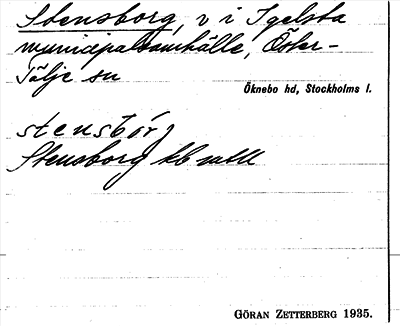 Stensborg, v i Igelsta
municipalsamhälle, Öster-
Tälje sn
Öknebo hd, Stockholms l.
stensbórj
Stensborg
GÖRAN ZETTERBERG 1935.